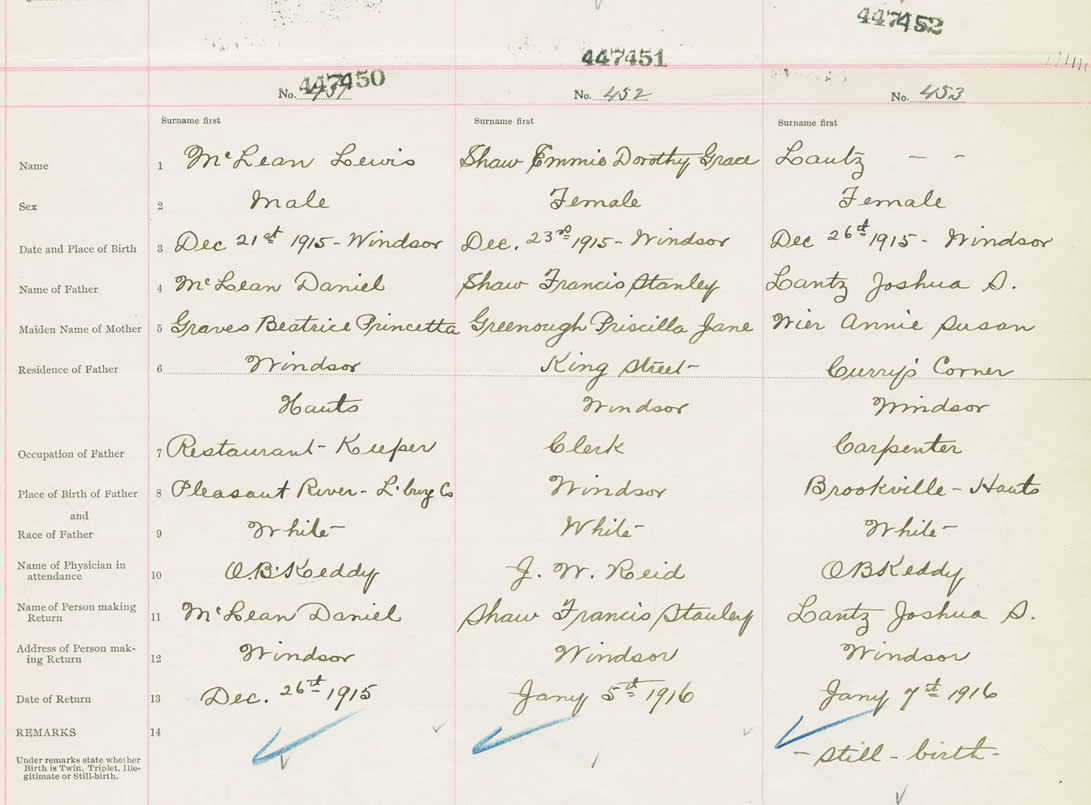 447452
447451
447450
No. 451 No. 452 No. 453
Surname first Surname first Surname first
Name 1 McLean Lewis Shaw Emmie Dorothy Grace Lantz – –
Sex 2 Male Female Female
Date and Place of Birth 3 Dec 21st 1915 - Windsor Dec. 23rd 1915 - Windsor Dec 26th 1915 - Windsor
Name of Father 4 McLean Daniel Shaw Francis Stanley Lantz Joshua S.
Maiden Name of Mother 5 Graves Beatrice Princetta Greenough Priscilla Jane Wier Annie Susan
Residence of Father 6 Windsor King Street - Curry's Corner
Hants Windsor Windsor
Occupation of Father 7 Restaurant - Keeper Clerk Carpenter
Place of Birth of Father 8 Pleasant River - L'burg Co Windsor Brookville - Hants
and
Race of Father 9 White White White
Name of Physician in
attendance 10 O.B. Keddy J. W. Reid O B Keddy
Name of Person making
Return 11 McLean Daniel Shaw Francis Stanley Lantz Joshua S.
Address of Person mak-
ing Return 12 Windsor Windsor Windsor
Date of Return 13 Dec. 26th 1915 Jany 5th 1916 Jany 7th 1916
REMARKS 14
- Still - birth -
Under remarks state whether
Birth is Twin, Triplet, Ille-
gitimate or Still-birth.